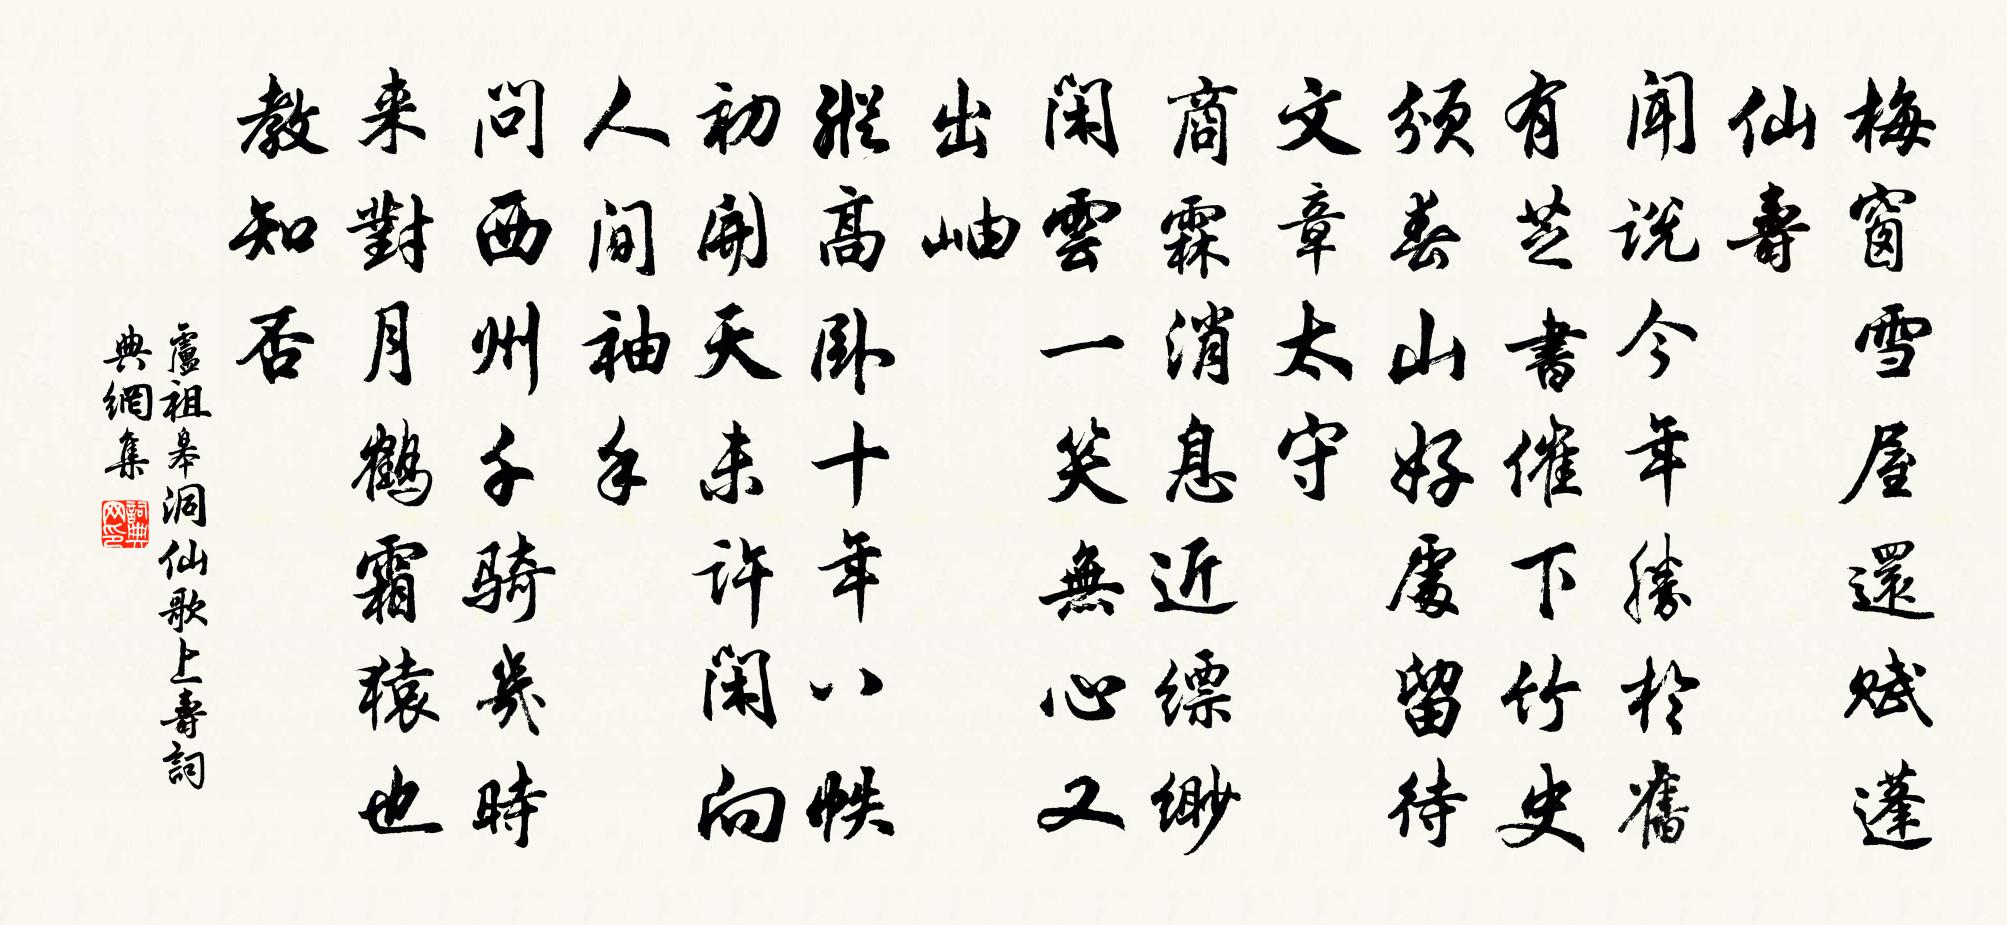 梅窗雪屋還賦蓬
仙壽
聞說今年勝於舊
有芝書催下竹史
頒春山好處留待
文章太守
商霖消息近縹緲
閑雲一笑無心又
出岫
縱高臥十年八帙
初開天未許閑向
人間袖手
問西州千騎幾時
来對月鶴霜猿也
教知否
盧祖皋洞仙歌上壽詞
典網集
詞典网印